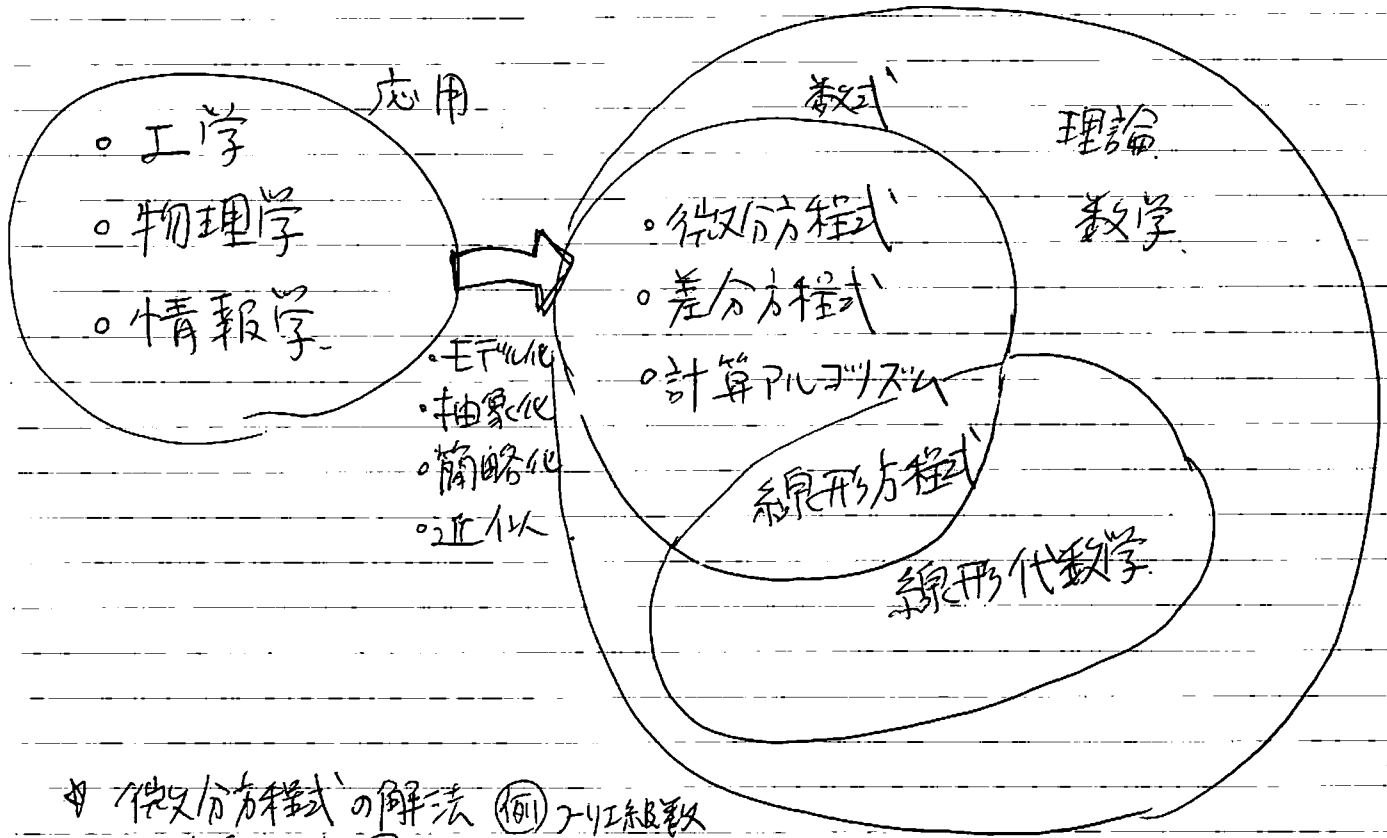 応用
○ 工学
○ 物理学
○ 情報学
・モデル化
・抽象化
○簡略化
○近似
数式
理論
数学
○微分方程式
○差分方程式
○計算アルゴリズム
線形方程式
線形代数学
☆ 微分方程式の解法 例 フーリエ級数